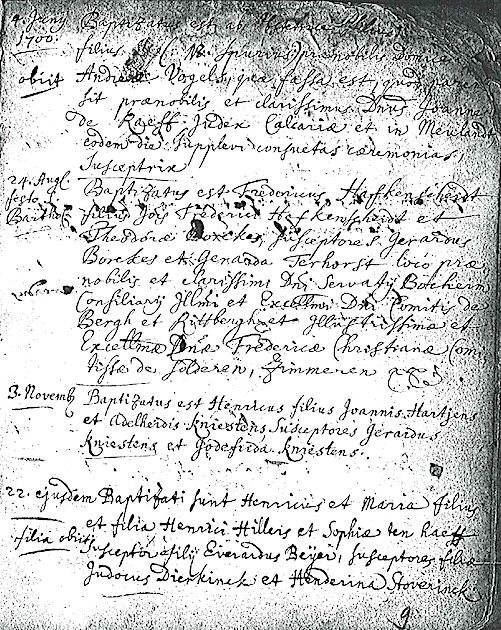 4. Junij Baptizatus est ab
1700. filius (N. Spurius) prænobilis Domicellæ
obiit Andreæ Vogels, quæ fassa est, quod pater
sit prænobilis et clarissimus Dnus Joannes
de Raeff Judex Calcariæ et in
eodem die supplevi consuetas cæremonias,
Susceptrix
24. Augl. Baptizatus est Fredericus Hafkenscheidt
festo filius Jois Frederici Hafkenscheidt et
Barthol. Theodoræ Borckes, Susceptores Gerardus
Borckes et Genanda Terhorst loco præ-
nobilis et clarissimi Dni Servatij
Consiliarij Illmi et Excellmi Dni Comitis de
Bergh et Rittbergh et Illustrissimæ et
Excellmæ Dnæ Fredericæ Christianæ Com
tissæ de Solderen, Zimmeren
3. Novemb Baptizatus est Henricus filius Joannis Hartjens
et Adelheidis Kniestens, Susceptores Gerardus
Kniestens et Godefrida Kniestens.
22. ejusdem Baptizati sunt Henricus et Maria filius
et filia Henrici Hilleis et Sophiæ ten Raeff
filia obiit, Susceptor filij Everardus Beijer, susceptores filiæ
Judocus Dierkinck et Henderina Stoverinck
9